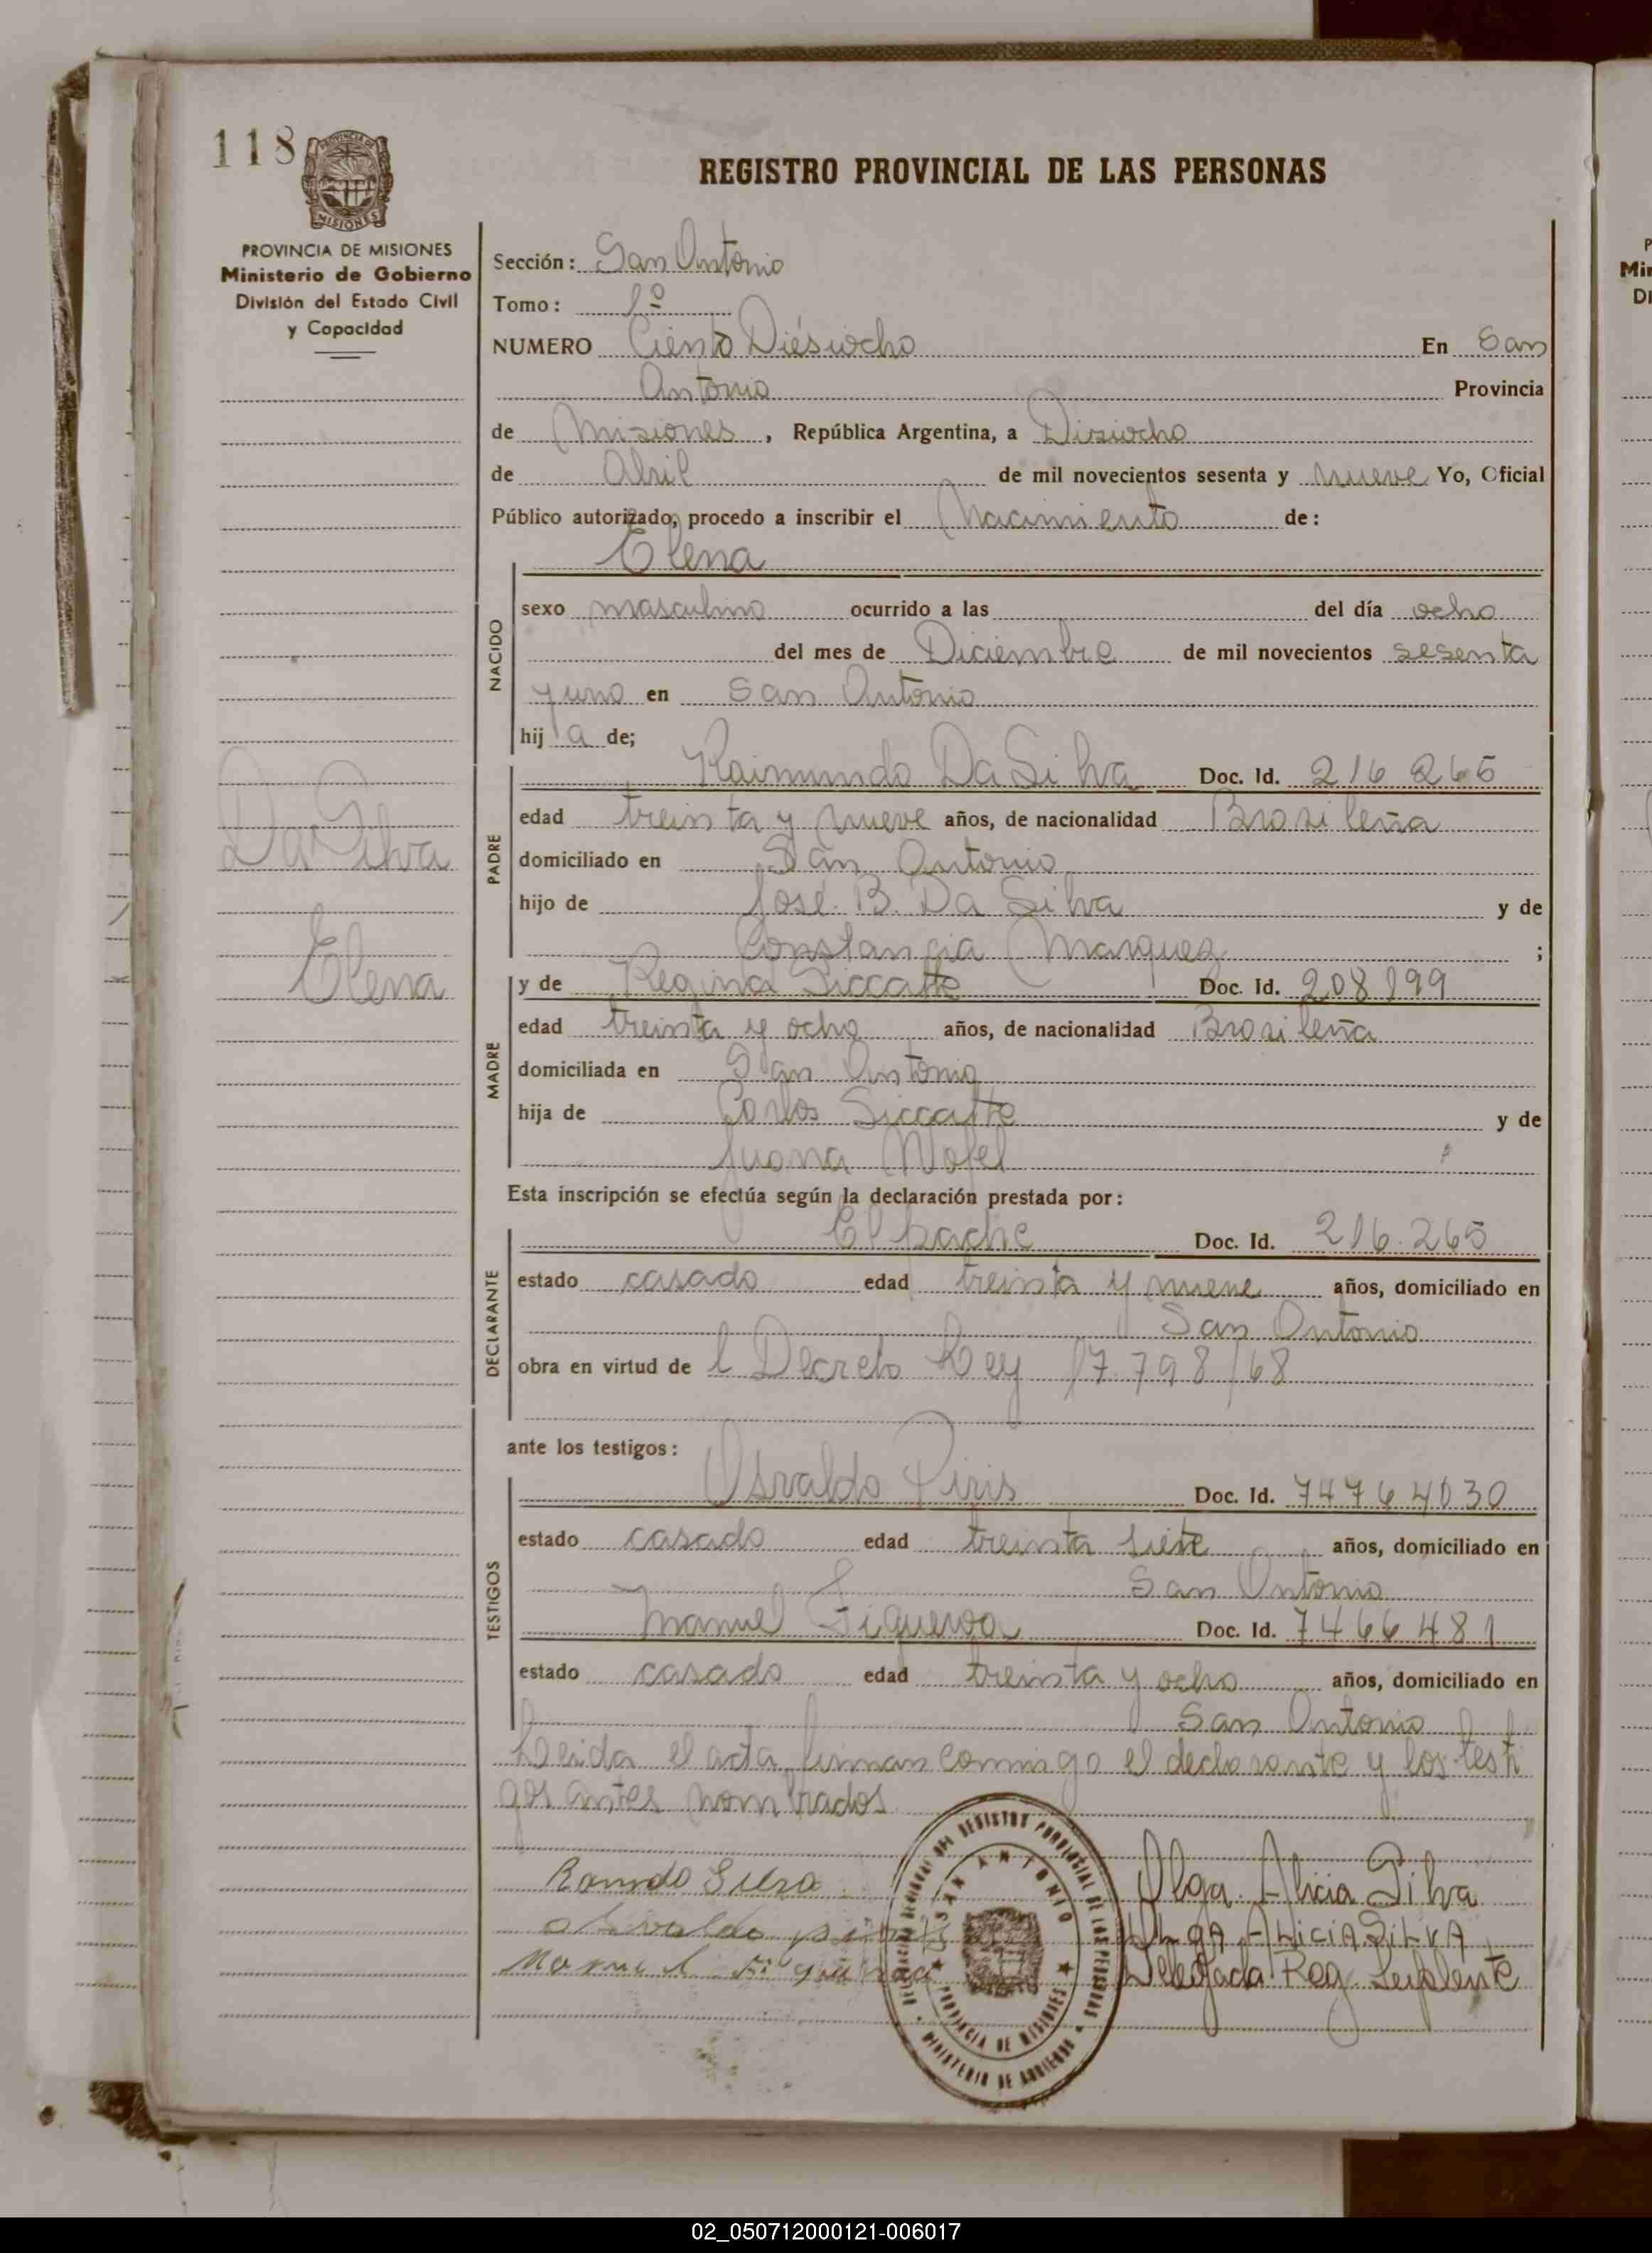 118
PROVINCIA DE MISIONES
Ministerio de Gobierno
División del Estado Civil
y Capacidad
REGISTRO PROVINCIAL DE LAS PERSONAS
Sección: San Antonio
Tomo: 1º
NUMERO Ciento Diésiocho En San
Antonio Provincia
de Misiones, República Argentina, a Disiocho
de Abril de mil novecientos sesenta y nueve Yo, Oficial
Público autorizado, procedo a inscribir el Nacimiento de:
Elena
NACIDO
sexo masculino ocurrido a las del día ocho
del mes de Diciembre de mil novecientos sesenta
y uno en San Antonio
hij a de;
Da Silva
Elena
PADRE
Raimundo Da Silva Doc. Id. 216 265
edad treinta y nueve años, de nacionalidad Brasileña
domiciliado en San Antonio
hijo de José B. Da Silva y de
Constancia Marquez ;
MADRE
y de Regina Siccatte Doc. Id. 208199
edad treinta y ocho años, de nacionalidad Brasileña
domiciliada en San Antonio
hija de Carlos Siccatte y de
Juana
Esta inscripción se efectúa según la declaración prestada por:
DECLARANTE
El padre Doc. Id. 216.265
estado casado edad treinta y nueve años, domiciliado en
San Antonio
obra en virtud de l Decreto Ley 17.798/68
ante los testigos:
TESTIGOS
Osvaldo Piris Doc. Id.
estado casado edad treinta siete años, domiciliado en
San Antonio
Manuel Figueroa Doc. Id. 7466481
estado casado edad treinta y ocho años, domiciliado en
San Antonio
Leida el acta, firman conmigo el declarante y los testi
gos antes nombrados
Silva
Osvaldo
Manuel
Olga Alicia Silva
OLGA ALICIA SILVA
Delegada Reg. Suplente
DELEGACION REGIONAL DEL REGISTRO PROVINCIAL DE LAS PERSONAS
SAN ANTONIO
PROVINCIA DE MISIONES
MINISTERIO DE GOBIERNO
02_050712000121-006017